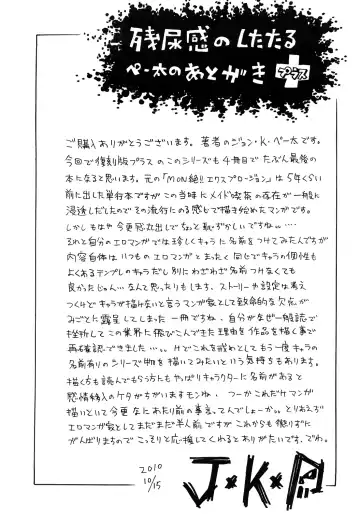 残尿感のしたたる
ペー太のあとがき プラス
ご購入ありがとうございます。著者のジョン・K・ペー太です。
今回で復刻版プラスのこのシリーズも4冊目でたぶん最後の
本になると思います。元の「MON絶!!エクスプロージョン」は5年くらい
前に出した単行本ですがこの当時にメイド喫茶の存在が一般に
浸透しだしたのでその流行にのる感じで描き始めたマンガです。
しかしもはや今更感丸出しでちょと恥ずかしいですねw‥‥
それと自分のエロマンガでは珍しくキャラに名前をつけてみたんですが
内容自体はいつものエロマンガとまったく同じでキャラの個性も
よくあるテンプレのキャラだし別にわざわざ名前つけなくても
良かったじゃん‥‥なんて思ったりもします。ストーリーや設定は考え
つくけどキャラが描けないと言うマンガ家として致命的な欠点が
みごとに露呈してしまった一冊ですね、自分がなぜ一般誌で
挫折してこの業界に飛びこんできた理由を作品を描く事で
再確認できました‥‥。けどこれを戒めとしてもう一度キャラの
名前ありのシリーズ物を描いてみたいという気持ちもあります。
描く方も読んでもらう方もやっぱりキャラクターに名前があると
感情移入のケタがちがいますモンね、つーかこれだけマンガ
描いといて今更なにあたり前の事を‥てんでしょーか。とりあえず
エロマンガ家としてまだまだ半人前ですがこれからも懲りずに
がんばりますのでこっそりと応援してくれるとありがたいです。でわ。
2010
10/15
J★K★P